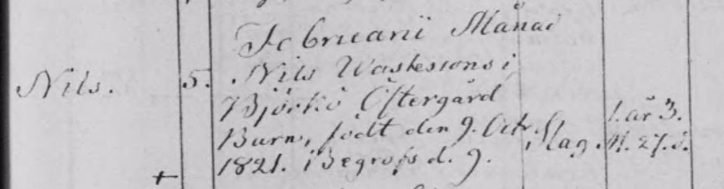 Februarii Månad
Nils. 5. Nils Waskesson i
Björkö Östergård
Barn, födt den 9. Octr. Slag. 1. år 3.
1821. i Begrofs d. 9. M. 27. d.
+